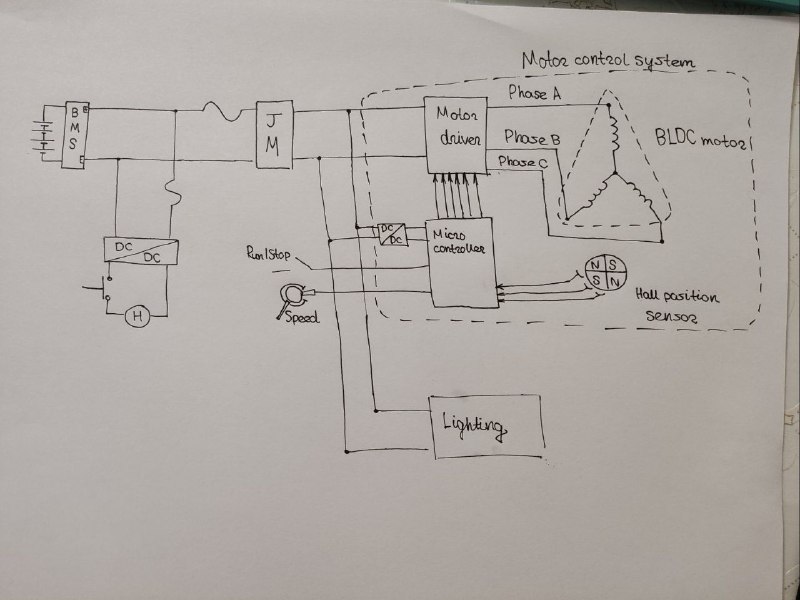 Motor control system
Phase A
B
M
S
J
M
Motor
driver
Phase B
Phase C
BLDC motor
DC
DC
DC
DC
Micro
controller
Run/Stop
N S
S N
Hall position
sensor
H
Speed
Lighting